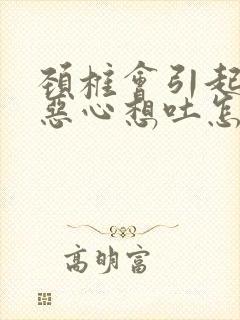 頚椎會引起
惡心想吐怎
高明富